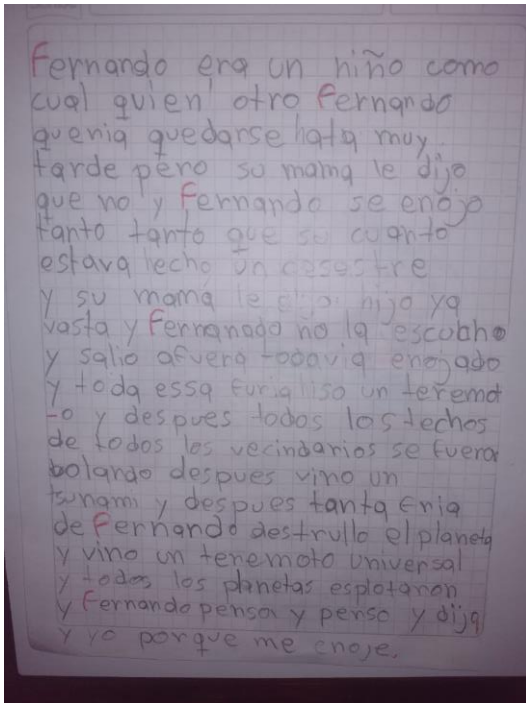 fernando era un niño como
cual quien otro fernando
queria quedarse hata muy
tarde pero su mama le dijo
que no y fernando se enojo
tanto tanto que su cuanto
estava lecho un desastre
y su mamá le dijo hijo ya
vasta y fernanado no la escubho
y salio afuera todavia enojado
y toda essa furia liso un teremot
-o y despues todos los techos
de todos los vecindarios se fueron
bolando despues vino un
tsunami y despues tanta
de fernando destrullo el planeta
y vino un teremoto universal
y todos los planetas esplotaron
y fernando penso y penso y dijo
y yo porque me enoje.